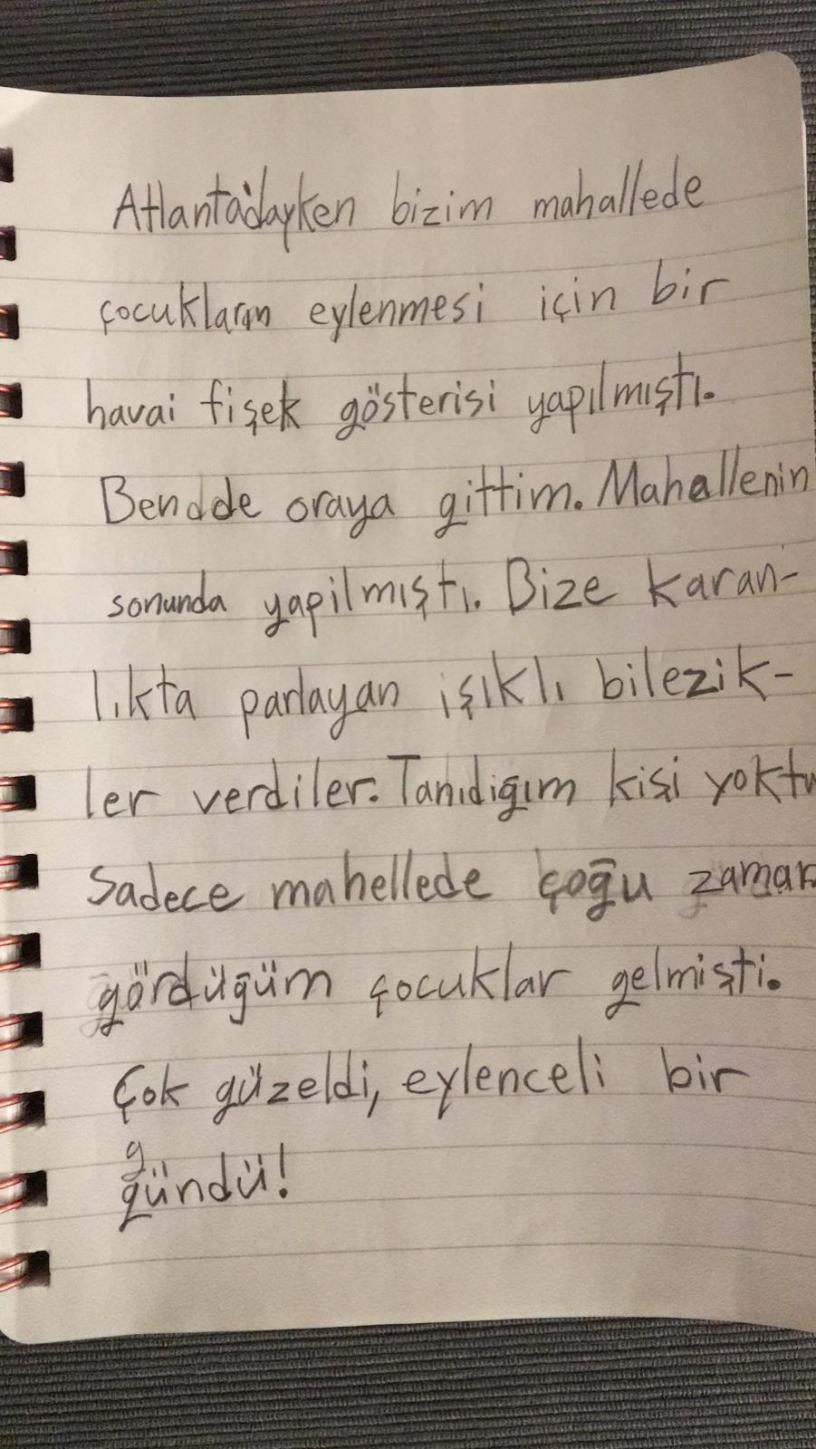 Atlanta'dayken bizim mahallede
çocukların eylenmesi için bir
havai fişek gösterisi yapılmıştı.
Bendde oraya gittim. Mahallenin
sonunda yapilmıştı. Bize karan-
lıkta parlayan işıklı bilezik-
ler verdiler. Tanıdiğım kişi yoktu
Sadece mahellede çoğu zaman
gördüğüm çocuklar gelmişti.
Çok güzeldi, eylenceli bir
g
gündü!